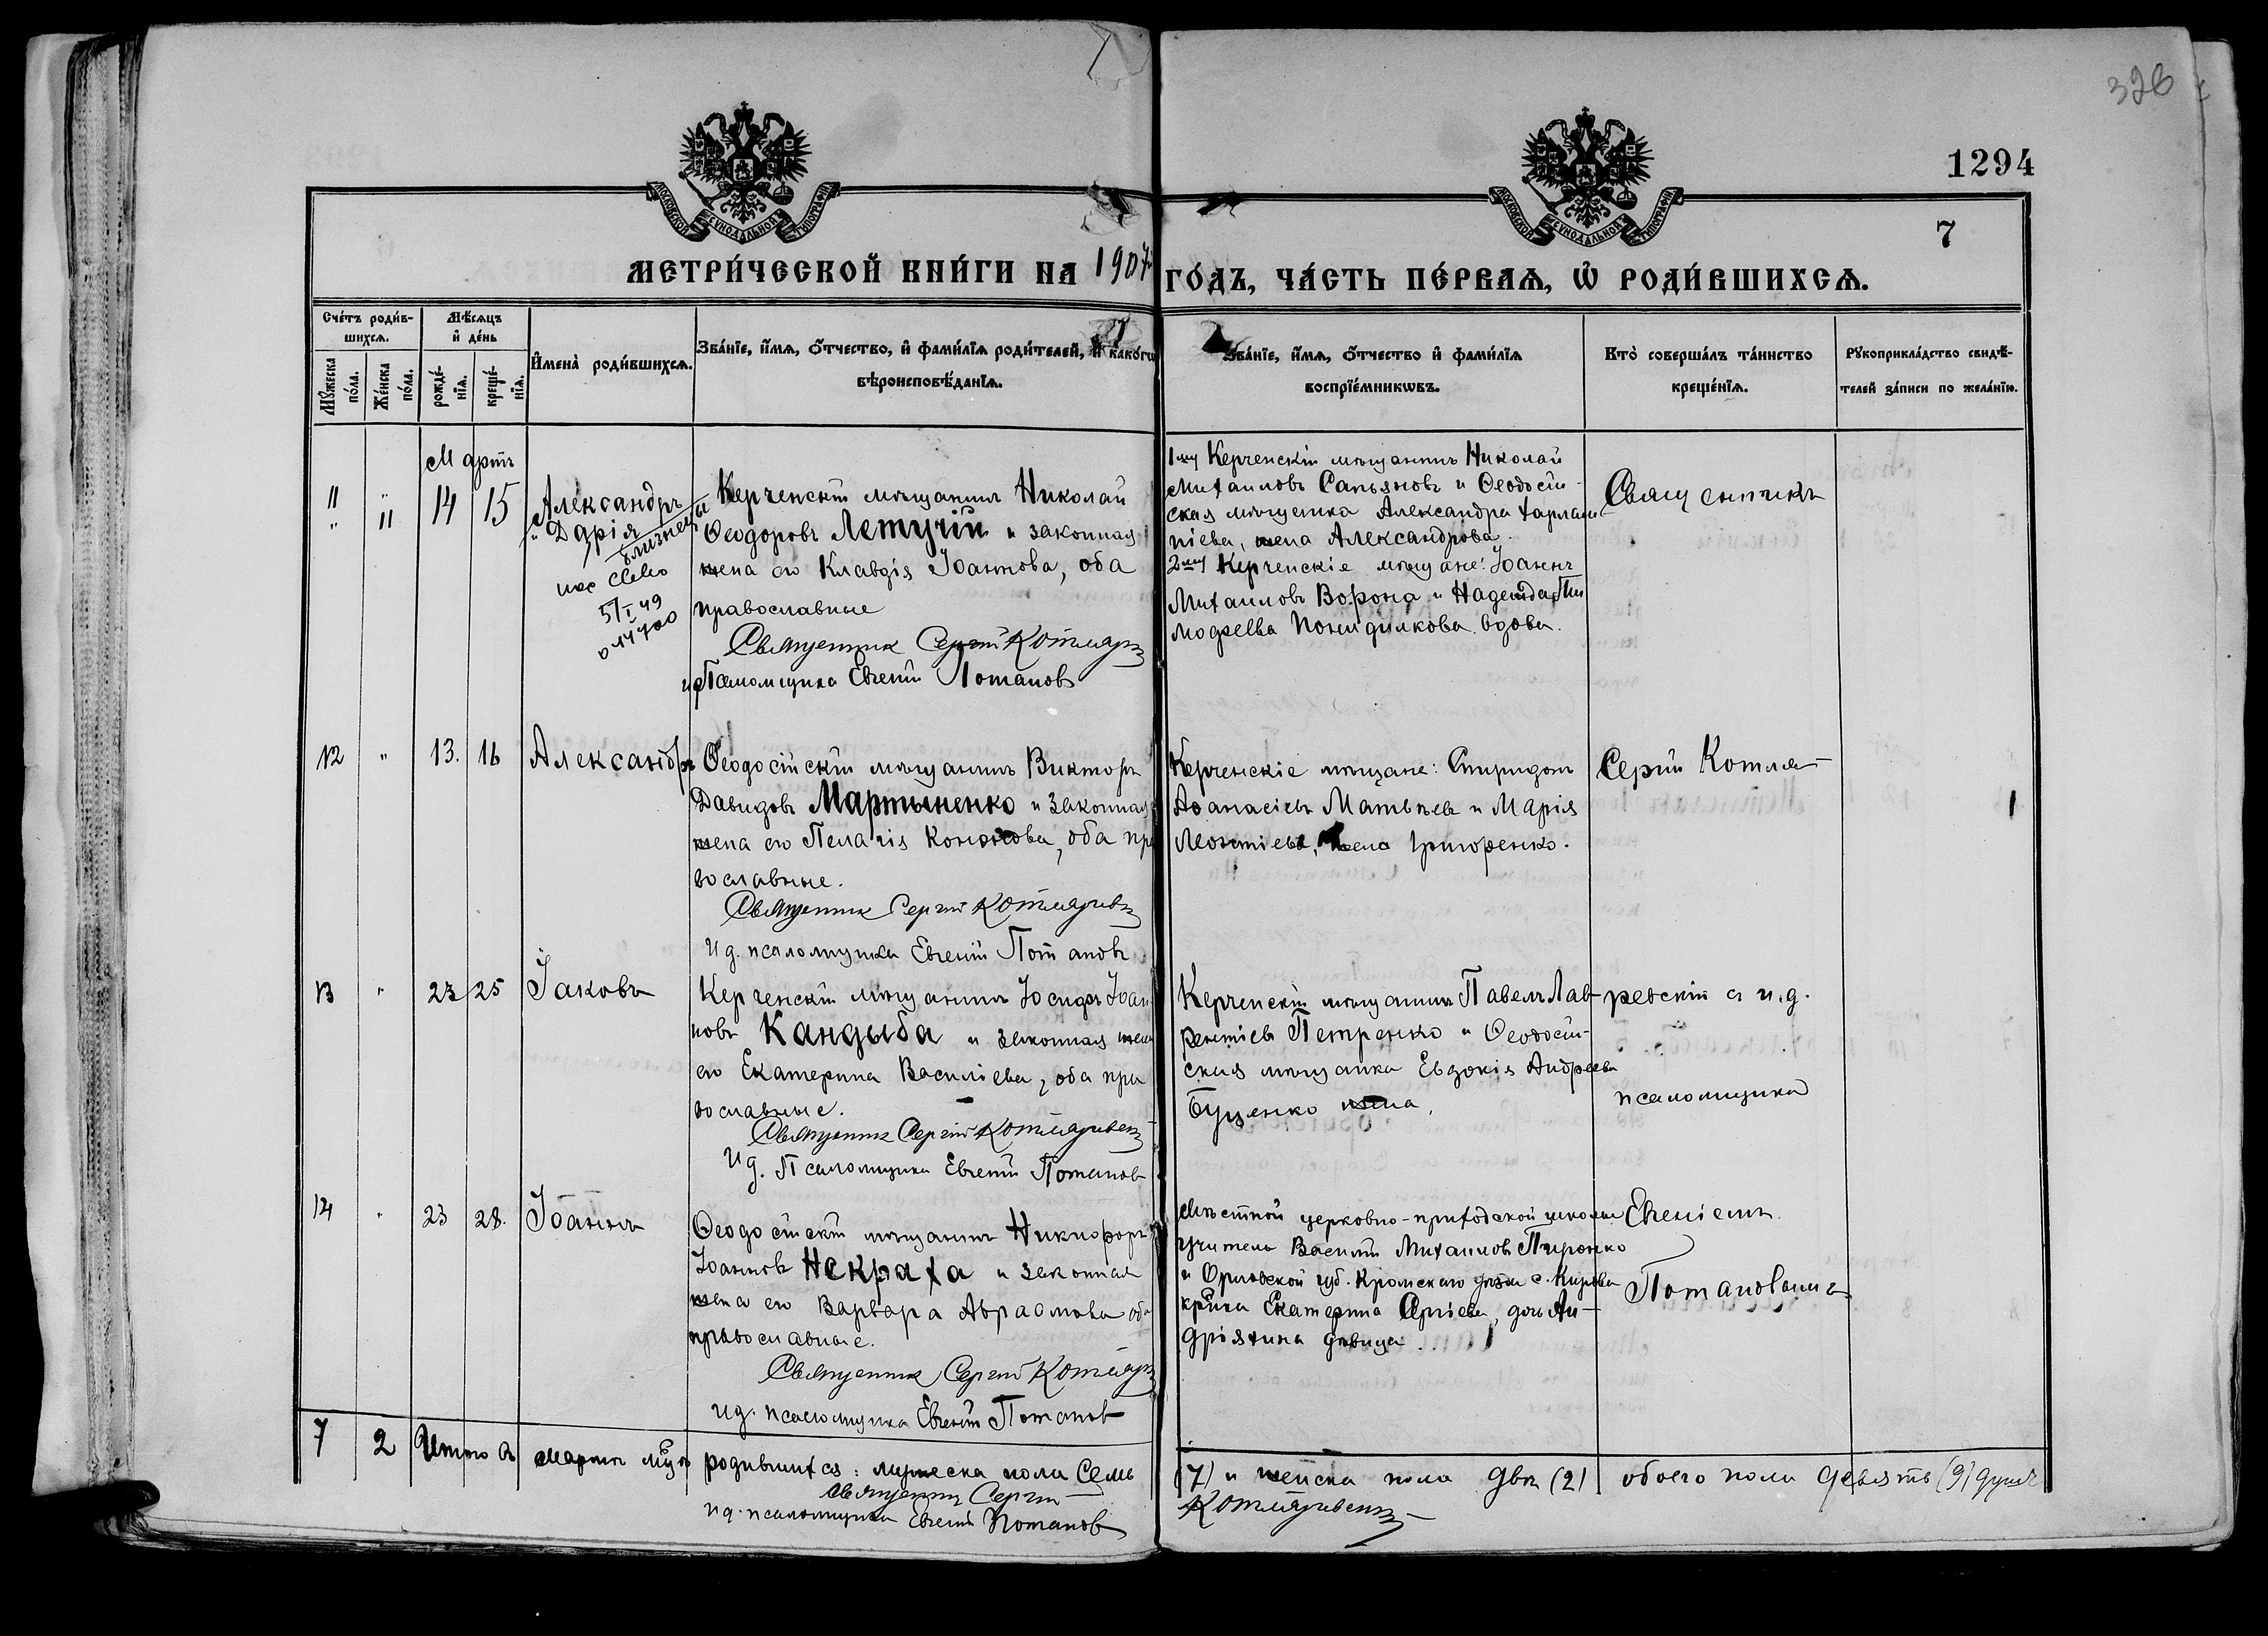 326
1294
7
МОСКОВСКОЙ СѴНОДАЛЬНОЙ ТИПОГРАФІИ
МОСКОВСКОЙ СѴНОДАЛЬНОЙ ТИПОГРАФІИ
МЕТРИ́ЧЕСКОЙ КНИ́ГИ НА 1907 ГО́ДЪ, ЧА́СТЬ ПЕ́РВАѦ, Ѡ҆ РОДИ́ВШИХСѦ.
Сче́тъ роди́в-
шихсѧ.
Мꙋ́жеска по́ла.
Же́нска по́ла.
Мѣ́сѧцъ
и҆ де́нь
рожде́-
нїѧ.
креще́-
нїѧ.
И҆мена̀ роди́вшихсѧ.
Зва́нїе, и҆́мѧ, ѻ҆́тчество, и҆ фами́лїѧ роди́телей, и҆ како́гѡ
вѣроисповѣ́данїѧ.
Зва́нїе, и҆́мѧ, ѻ҆́тчество и҆ фами́лїѧ
воспрїе́мникѡвъ.
Кто̀ соверша́лъ та́инство
креще́нїѧ.
Рꙋкоприкла́дство свидѣ́-
телей за́писи по жела́нїю.
Мартъ
11 " 14 15 Александръ
" 11 Дарія
близнецы
5/I 49
Керченскій мѣщанинъ Николай
Ѳеодоровъ Летучій и законная
жена его Клавдія Іоаннова, оба
православные
Священник Сергій Котляр
и д Псаломщика Евгеній Потапов
1му Керченскій мѣщанинъ Николай
Михаиловъ Сапьяновъ и Ѳеодосій-
ская мѣщанка Александра Харлам-
піева, жена Александрова.
2му Керченскіе мѣщане: Іоаннъ
Михаиловъ Ворона и Надежда Ти
моѳеева вдова.
Священникъ
12 " 13. 16 Александръ
Ѳеодосійскій мѣщанинъ Викторъ
Давидовъ Мартыненко и законная
жена его Пелагія Кононова, оба пра
вославные.
Священник Сергій Котляревск
И д. псаломщика Евгеній Потаповъ
Керченскіе мѣщане: Спиридонъ
Аѳанасіевъ Матвѣевъ и Марія
Леонтіева, жена Григоренко.
Сергій Котля-
13 " 23 25 Іаковъ
Керченскій мѣщанинъ Іосифъ Іоан
новъ Кандыба и законная жена
его Екатерина Василіева, оба пра
вославные.
Священник Сергій Котляревск
И д. Псаломщика Евгеній Потапов
Керченскій мѣщанинъ Павелъ Лав-
рентіевъ Петренко и Ѳеодосій-
ская мѣщанка Евдокія Андреева
Буценко жена.
ревскій с и.д.
псаломщика
14 " 23 28. Іоаннъ
Ѳеодосійскій мѣщанинъ Никифоръ
Іоаннов Некраха и законная
жена его Варвара Авраамова оба
православные.
Священник Сергій Котляр
И д. псаломщика Евгеній Потапов
Мѣстной церковно-приходской школы
учитель Василій Михаилов Пиронко
и Орловской губ. Кромскаго уѣзда с. Кирова
Екатерина Сергіева, дочь Ан-
дріяхина дѣвица.
Евгеніемъ
Потаповымъ
7 2 Итого въ мартѣ м-цѣ родившихся: мужеска пола Семь (7) и женска пола двѣ (2) обоего пола девять (9) душъ
Священник Сергій Котляревск
и д. псаломщика Евгеній Потапов